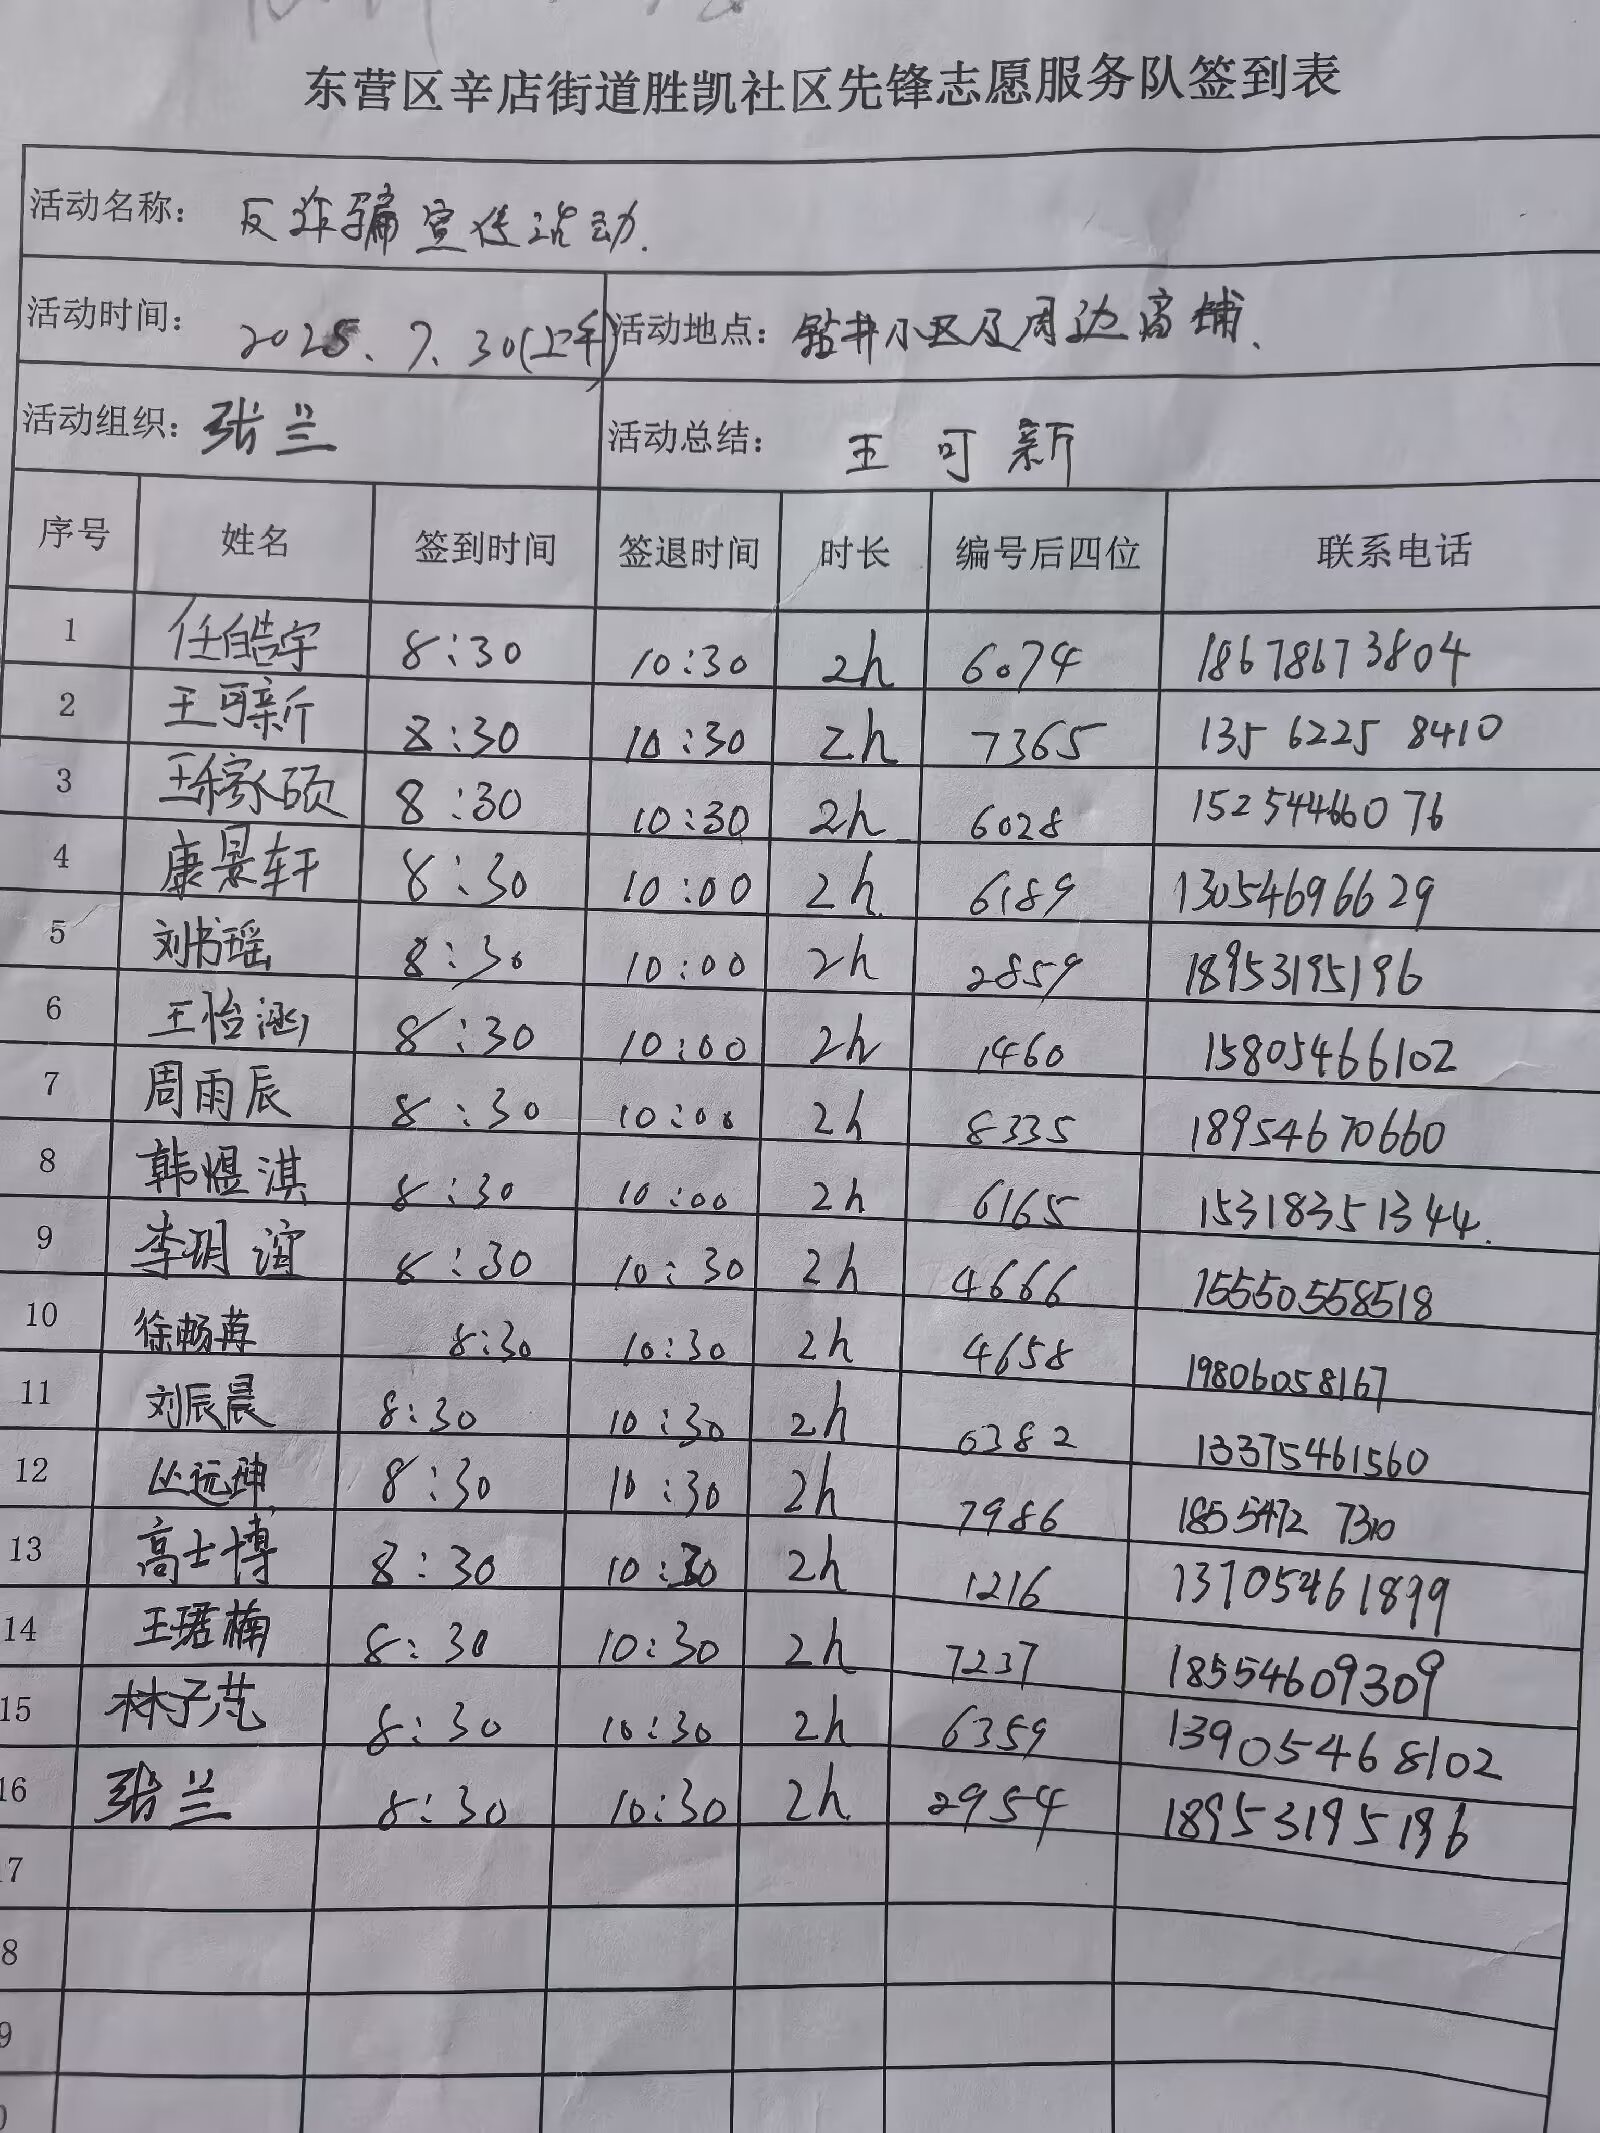 东营区辛店街道胜凯社区先锋志愿服务队签到表
活动名称: 反诈骗宣传活动.
活动时间: 2025、7、30(上午) 活动地点: 钻井小区及周边商铺、
活动组织: 张兰 活动总结: 王可新
序号 姓名 签到时间 签退时间 时长 编号后四位 联系电话
1 任皓宇 8:30 10:30 2h 6074 18678673804
2 王可新 8:30 10:30 2h 7365 135 6225 8410
3 王稼硕 8:30 10:30 2h 6028 15254466076
4 康景轩 8:30 10:00 2h 6189 13054696629
5 刘书瑶 8:30 10:00 2h 2859 18953195196
6 王怡涵 8:30 10:00 2h 1460 15805466102
7 周雨辰 8:30 10:00 2h 8335 18954670660
8 韩煜淇 8:30 10:00 2h 6165 15318351344.
9 李玥谊 8:30 10:30 2h 4666 15550558518
10 徐畅苒 8:30 10:30 2h 4658 19806058167
11 刘辰晨 8:30 10:30 2h 6382 13375461560
12 丛远珅 8:30 10:30 2h 7986 1855472 7310
13 高士博 8:30 10:30 2h 1216 13705461899
14 王珺楠 8:30 10:30 2h 7237 18554609309
15 林子芃 8:30 10:30 2h 6359 13905468102
16 张兰 8:30 10:30 2h 2954 18953195196
17
8
9
0